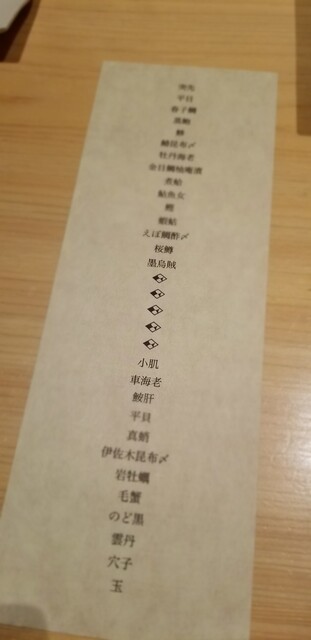 平目
春子鯛
黒鮑
鰆昆布〆
牡丹海老
金目鯛柚庵漬
煮鮑
鮎魚女
鰹
えぼ鯛酢〆
桜鱒
墨烏賊
小肌
車海老
鮟肝
平貝
真蛸
伊佐木昆布〆
岩牡蠣
毛蟹
のど黒
雲丹
穴子
玉